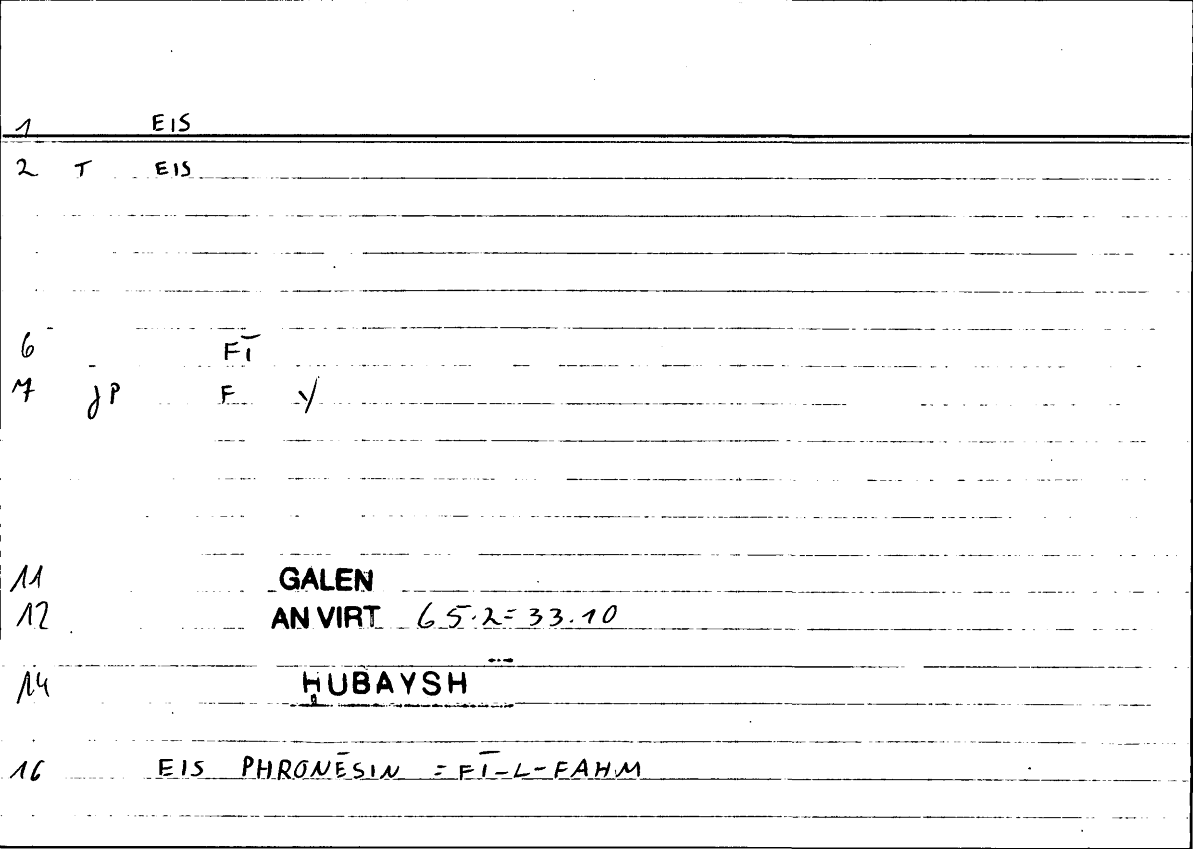 1 EIS
2 T EIS
6 FĪ
7 jP F y
11 GALEN
12 AN VIRT 65.2=33.10
14 ḤUBAYSH
16 EIS PHRONĒSIN = FĪ-L-FAHM